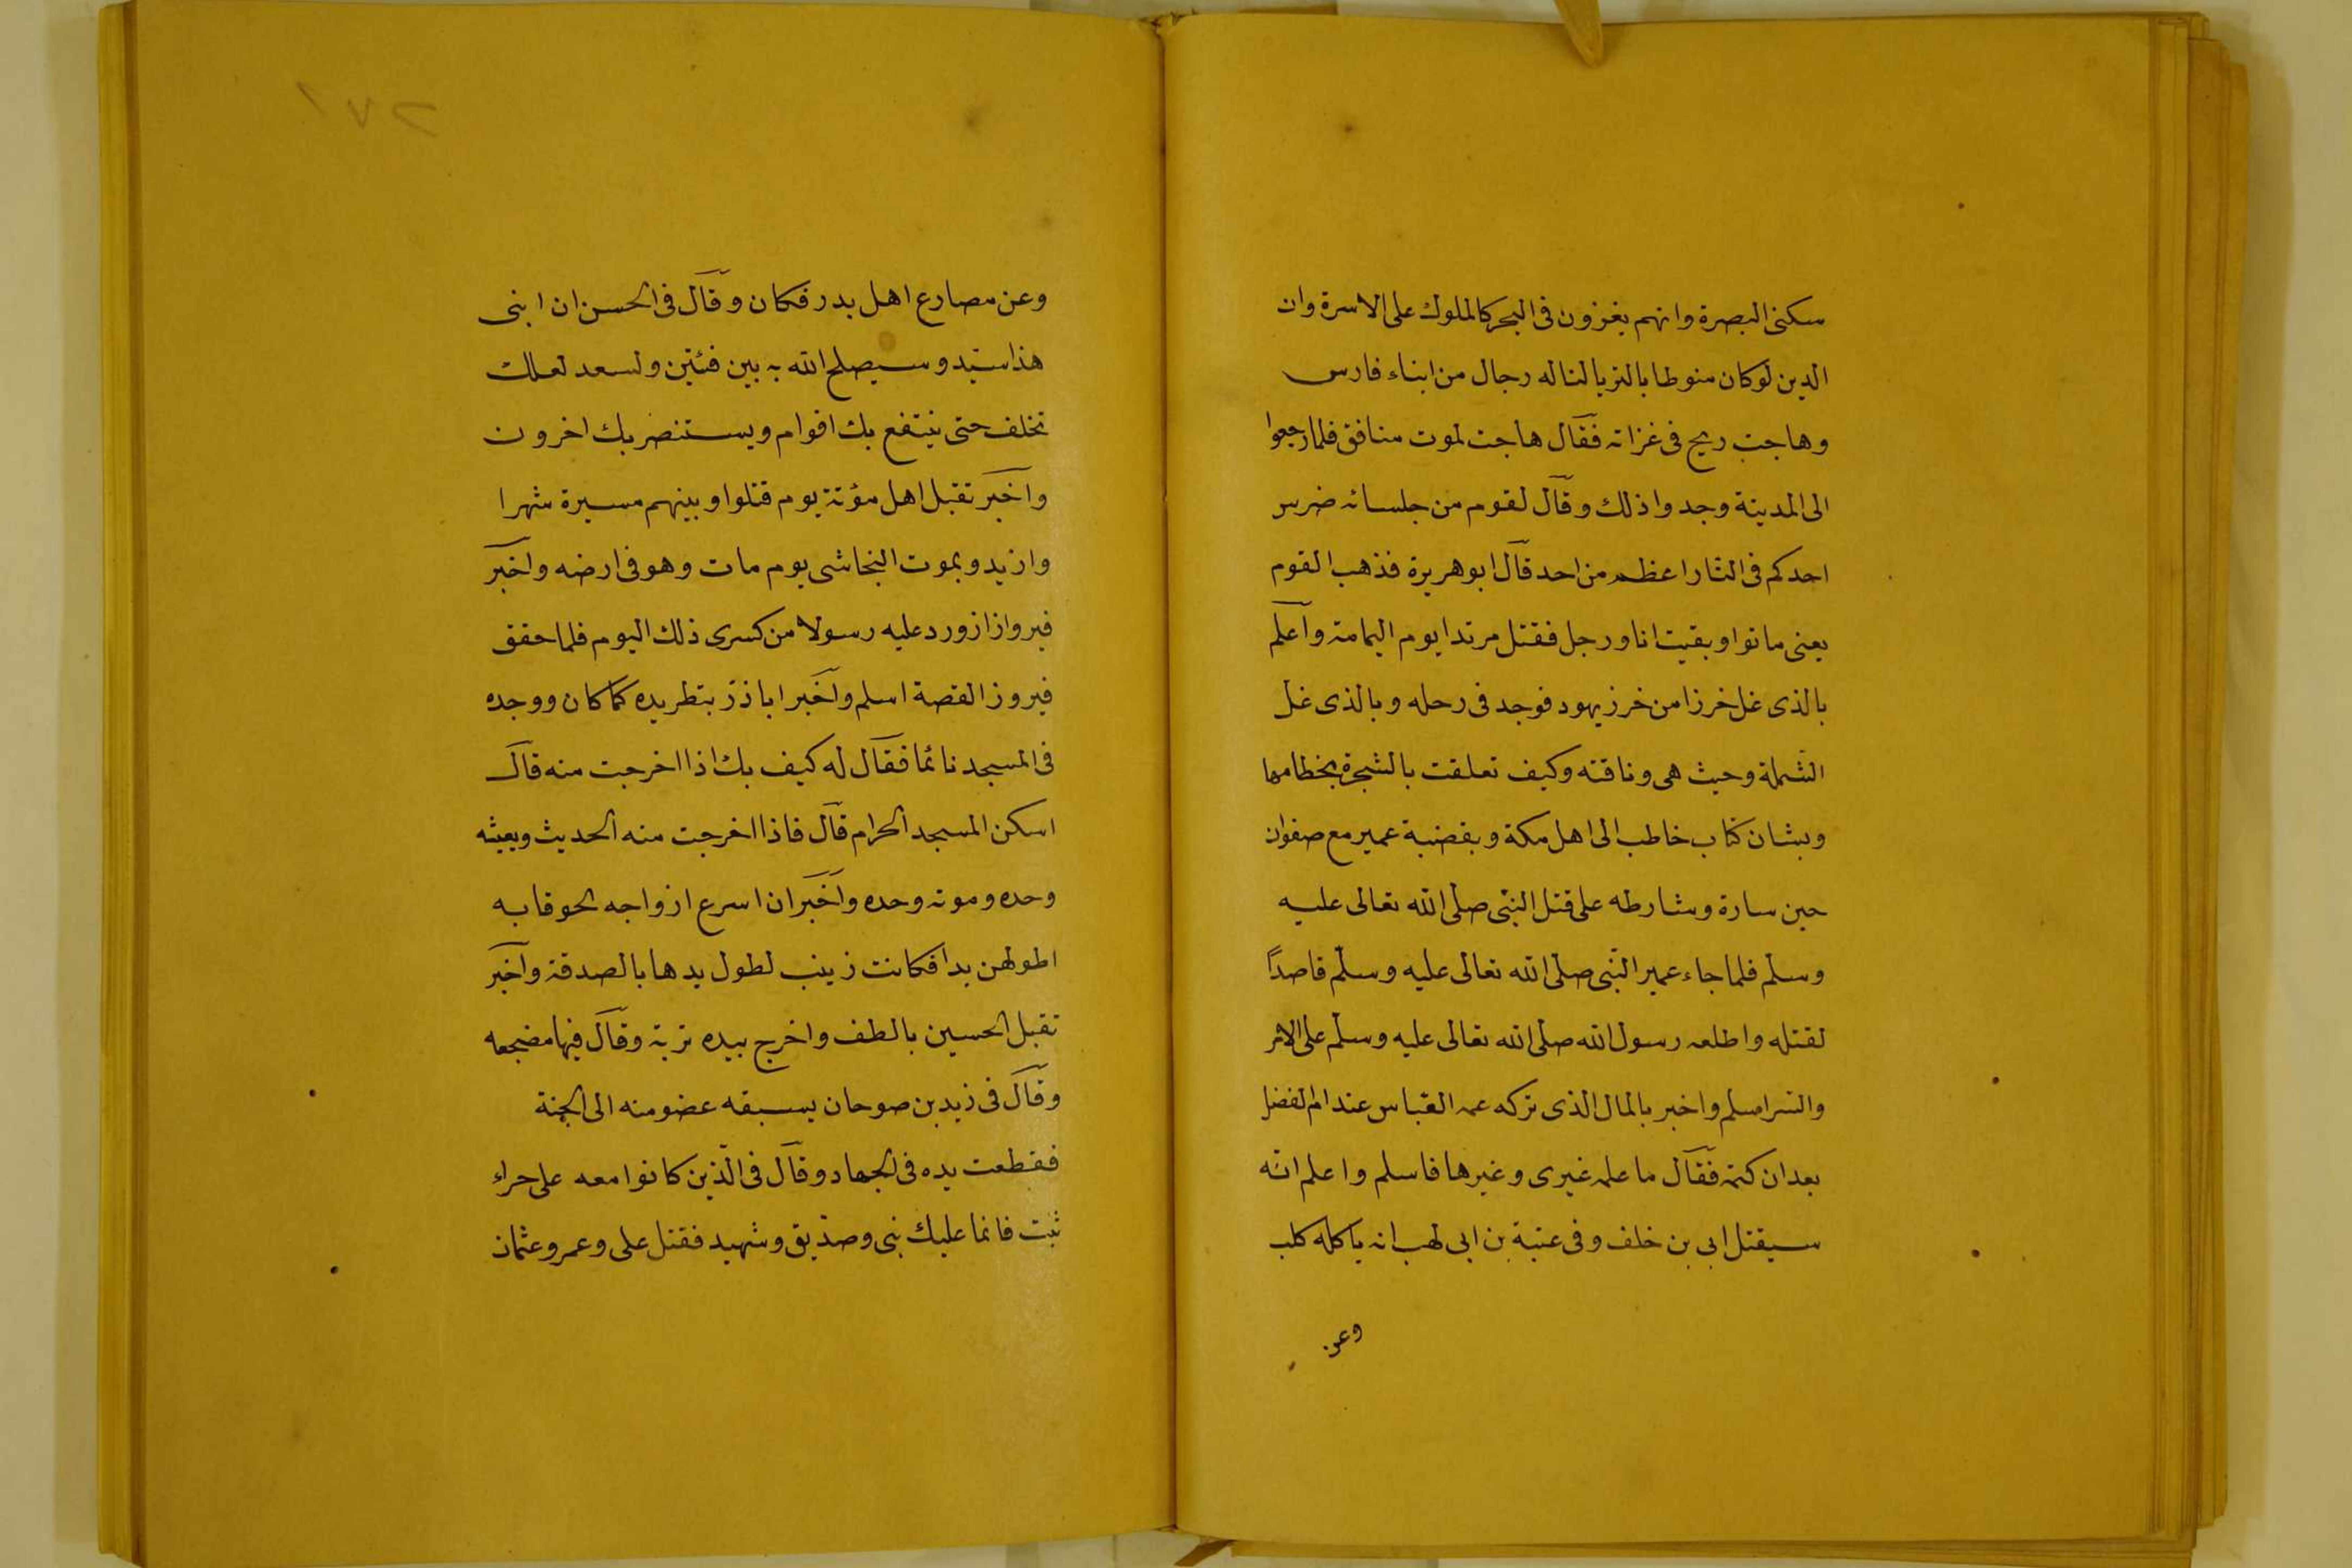 سكنى البصرة وانهم يغزون فى البحر كالملوك على الاسرة وان
الدين لو كان منوطا بالثريا لناله رجال من ابناء فارس
وهاجت ريح فى غزاته فقال هاجت لموت منافق فلما رجعوا
الى المدينة وجدوا ذلك وقال لقوم من جلسائه ضرس
احدكم فى النار اعظم من احد قال ابو هريرة فذهب القوم
يعنى ماتوا وبقيت انا ورجل فقتل مرتدا يوم اليمامة واعلم
بالذى غل خرزا من خرز يهود فوجد فى رحله وبالذى غل
الشملة وحيث هى وناقته وكيف تعلقت بالشجرة بخطامها
وبشان كتاب خاطب الى اهل مكة وبقضية عمير مع صفوان
حين سارة وشارطه على قتل النبى صلى الله تعالى عليه
وسلم فلما جاء عمير النبى صلى الله تعالى عليه وسلم قاصدًا
لقتله واطلعه رسول الله صلى الله تعالى عليه وسلم على الامر
والسر اسلم واخبر بالمال الذى تركه عمه العباس عند ام الفضل
بعد ان كتمه فقال ما علمه غيرى وغيرها فاسلم واعلم انه
سيقتل ابى بن خلف وفى عتبة بن ابى لهب انه ياكله كلب
وعن
٢٧١
وعن مصارع اهل بدر فكان وقال فى الحسن ان ابنى
هذا سيد وسيصلح الله به بين فئتين ولسعد لعلك
تخلف حتى ينتفع بك اقوام ويستنصر بك اخرون
واخبر تقبل اهل مؤتة يوم قتلوا وبينهم مسيرة شهرا
وازيد وبموت النجاشى يوم مات وهو فى ارضه واخبر
فيرواز ازورد عليه رسولا من كسرى ذلك اليوم فلما حقق
فيروز القصة اسلم واخبر اباذر بتطريده كما كان ووجده
فى المسجد نائما فقال له كيف بك اذا اخرجت منه قال
اسكن المسجد الحرام قال فاذا اخرجت منه الحديث وبعيثه
وحده وموته وحده واخبر ان اسرع ازواجه لحوقا به
اطولهن يدا فكانت زينب لطول يدها بالصدقة واخبر
تقبل الحسين بالطف واخرج بيده تربة وقال فيها مضجعه
وقال فى زيد بن صوحان يسبقه عضو منه الى الجنة
فقطعت يده فى الجهاد وقال فى الذين كانوا معه على حراء
ثبت فانما عليك نبى وصديق وشهيد فقتل على وعمر وعثمان